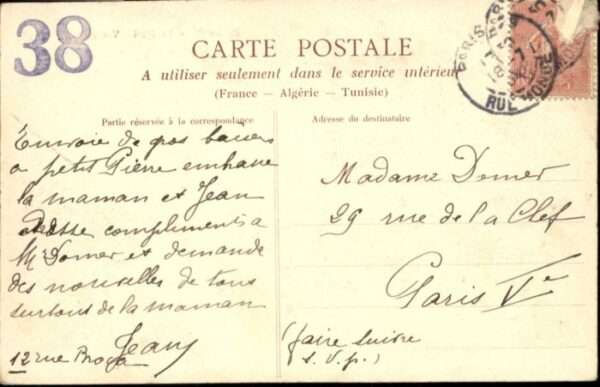 38
CARTE POSTALE
A utiliser seulement dans le service intérieur
(France — Algérie — Tunisie)
Partie réservée à la correspondance
Adresse du destinataire
Envoie de gros baisers
a petit Pierre embrasse
la maman et Jean
adresse compliments a
Mr Domer et demande
des nouvelles de tous
surtout de la maman
Jean
12 rue
Madame Domer
29 rue de la Clef
Paris Ve
(faire suivre
s.v.p.)
PARIS
RUE MONGE